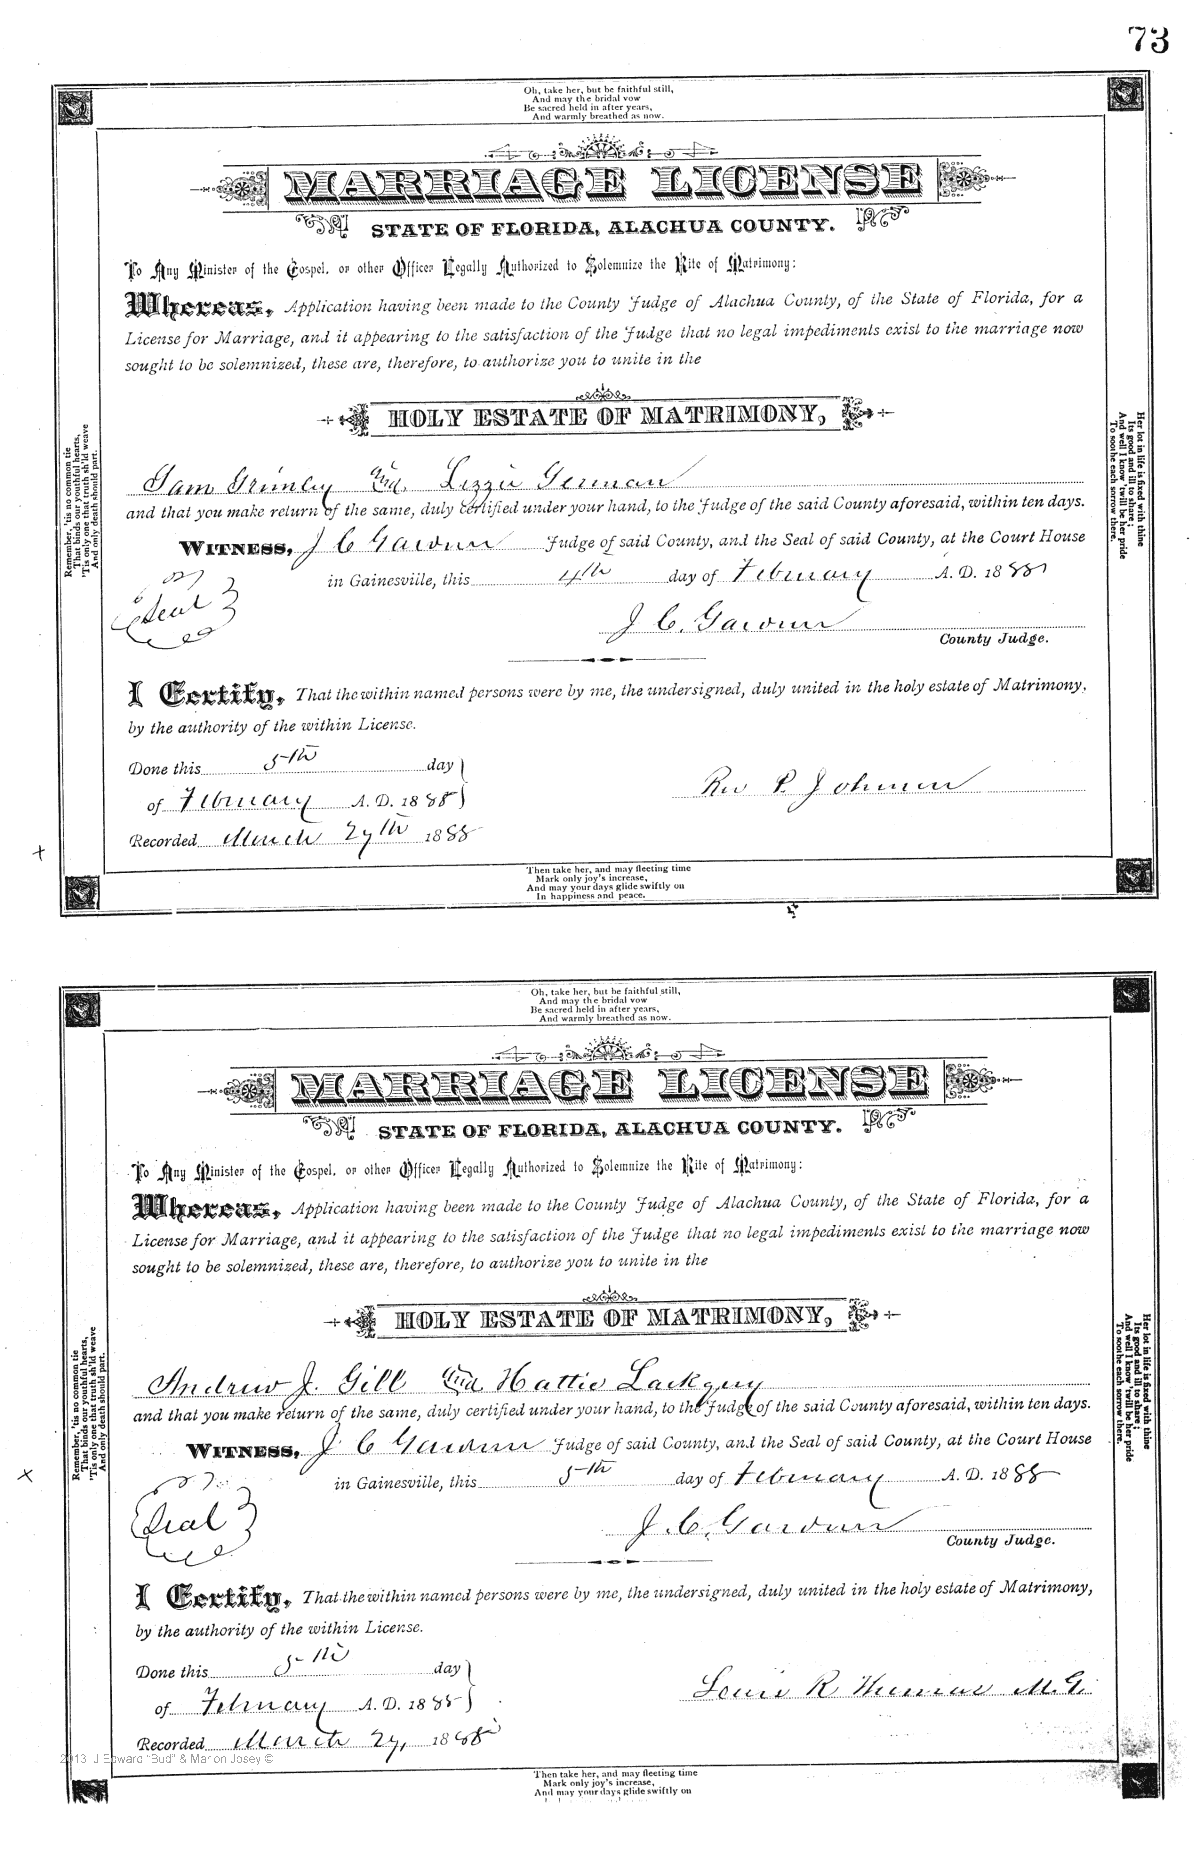 73
Oh, take her, but be faithful still,
And may the bridal vow
Be sacred held in after years,
And warmly breathed as now.
MARRIAGE LICENSE
STATE OF FLORIDA, ALACHUA COUNTY.
To Any Minister of the Gospel, or other Officer Legally Authorized to Solemnize the Rite of Matrimony:
Whereas, Application having been made to the County Judge of Alachua County, of the State of Florida, for a
License for Marriage, and it appearing to the satisfaction of the Judge that no legal impediments exist to the marriage now
sought to be solemnized, these are, therefore, to authorize you to unite in the
HOLY ESTATE OF MATRIMONY,
Sam Grimley And Lizzie German
and that you make return of the same, duly certified under your hand, to the Judge of the said County aforesaid, within ten days.
WITNESS, J C Gardner Judge of said County, and the Seal of said County, at the Court House
in Gainesville, this 4th day of February A. D. 1888
Seal
J. C. Gardner
County Judge.
I Certify, That the within named persons were by me, the undersigned, duly united in the holy estate of Matrimony,
by the authority of the within License.
Done this 5th day
of February A. D. 1888
Rev P. Johnson
Recorded March 27th 1888
Remember, 'tis no common tie
That binds our youthful hearts,
'Tis only one that truth sh'ld weave
And only death should part.
Her lot in life is fixed with thine
Its good and ill to share;
And well I know 'twill be her pride
To soothe each sorrow there.
Then take her, and may fleeting time
Mark only joy's increase,
And may your days glide swiftly on
In happiness and peace.
Oh, take her, but be faithful still,
And may the bridal vow
Be sacred held in after years,
And warmly breathed as now.
MARRIAGE LICENSE
STATE OF FLORIDA, ALACHUA COUNTY.
To Any Minister of the Gospel, or other Officer Legally Authorized to Solemnize the Rite of Matrimony:
Whereas, Application having been made to the County Judge of Alachua County, of the State of Florida, for a
License for Marriage, and it appearing to the satisfaction of the Judge that no legal impediments exist to the marriage now
sought to be solemnized, these are, therefore, to authorize you to unite in the
HOLY ESTATE OF MATRIMONY,
Andrew J. Gill And Hattie Lackey
and that you make return of the same, duly certified under your hand, to the Judge of the said County aforesaid, within ten days.
WITNESS, J C Gardner Judge of said County, and the Seal of said County, at the Court House
in Gainesville, this 5th day of February A. D. 1888
Seal
J. C. Gardner
County Judge.
I Certify, That the within named persons were by me, the undersigned, duly united in the holy estate of Matrimony,
by the authority of the within License.
Done this 5th day
of February A. D. 1888
Louis R Thomas M.G.
Recorded March 27, 1888
Remember, 'tis no common tie
That binds our youthful hearts,
'Tis only one that truth sh'ld weave
And only death should part.
Her lot in life is fixed with thine
Its good and ill to share;
And well I know 'twill be her pride
To soothe each sorrow there.
2013 J Edward "Bud" & Marion Josey ©
Then take her, and may fleeting time
Mark only joy's increase,
And may your days glide swiftly on